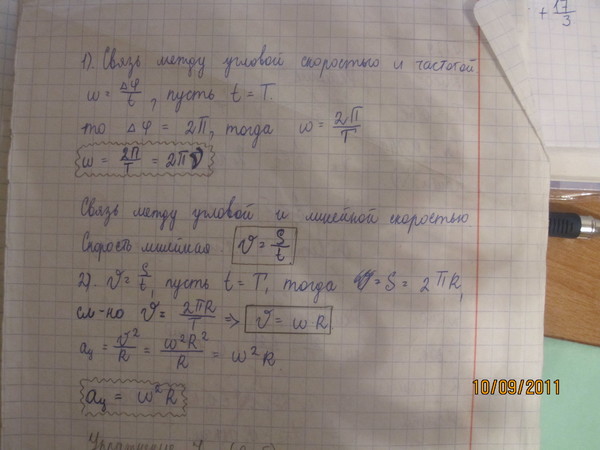 + 17/3
1). Связь между угловой скоростью и частотой
ω = Δφ/t, пусть t = T.
то Δφ = 2П, тогда ω = 2П/T
ω = 2П/T = 2Пν
Связь между угловой и линейной скоростью
Скорость линейная. υ = S/t.
2). υ = S/t, пусть t = T, тогда S = 2πR,
см-но υ = 2πR/T => υ = ωR
aц = υ²/R = ω²R²/R = ω²R
aц = ω²R
10/09/2011